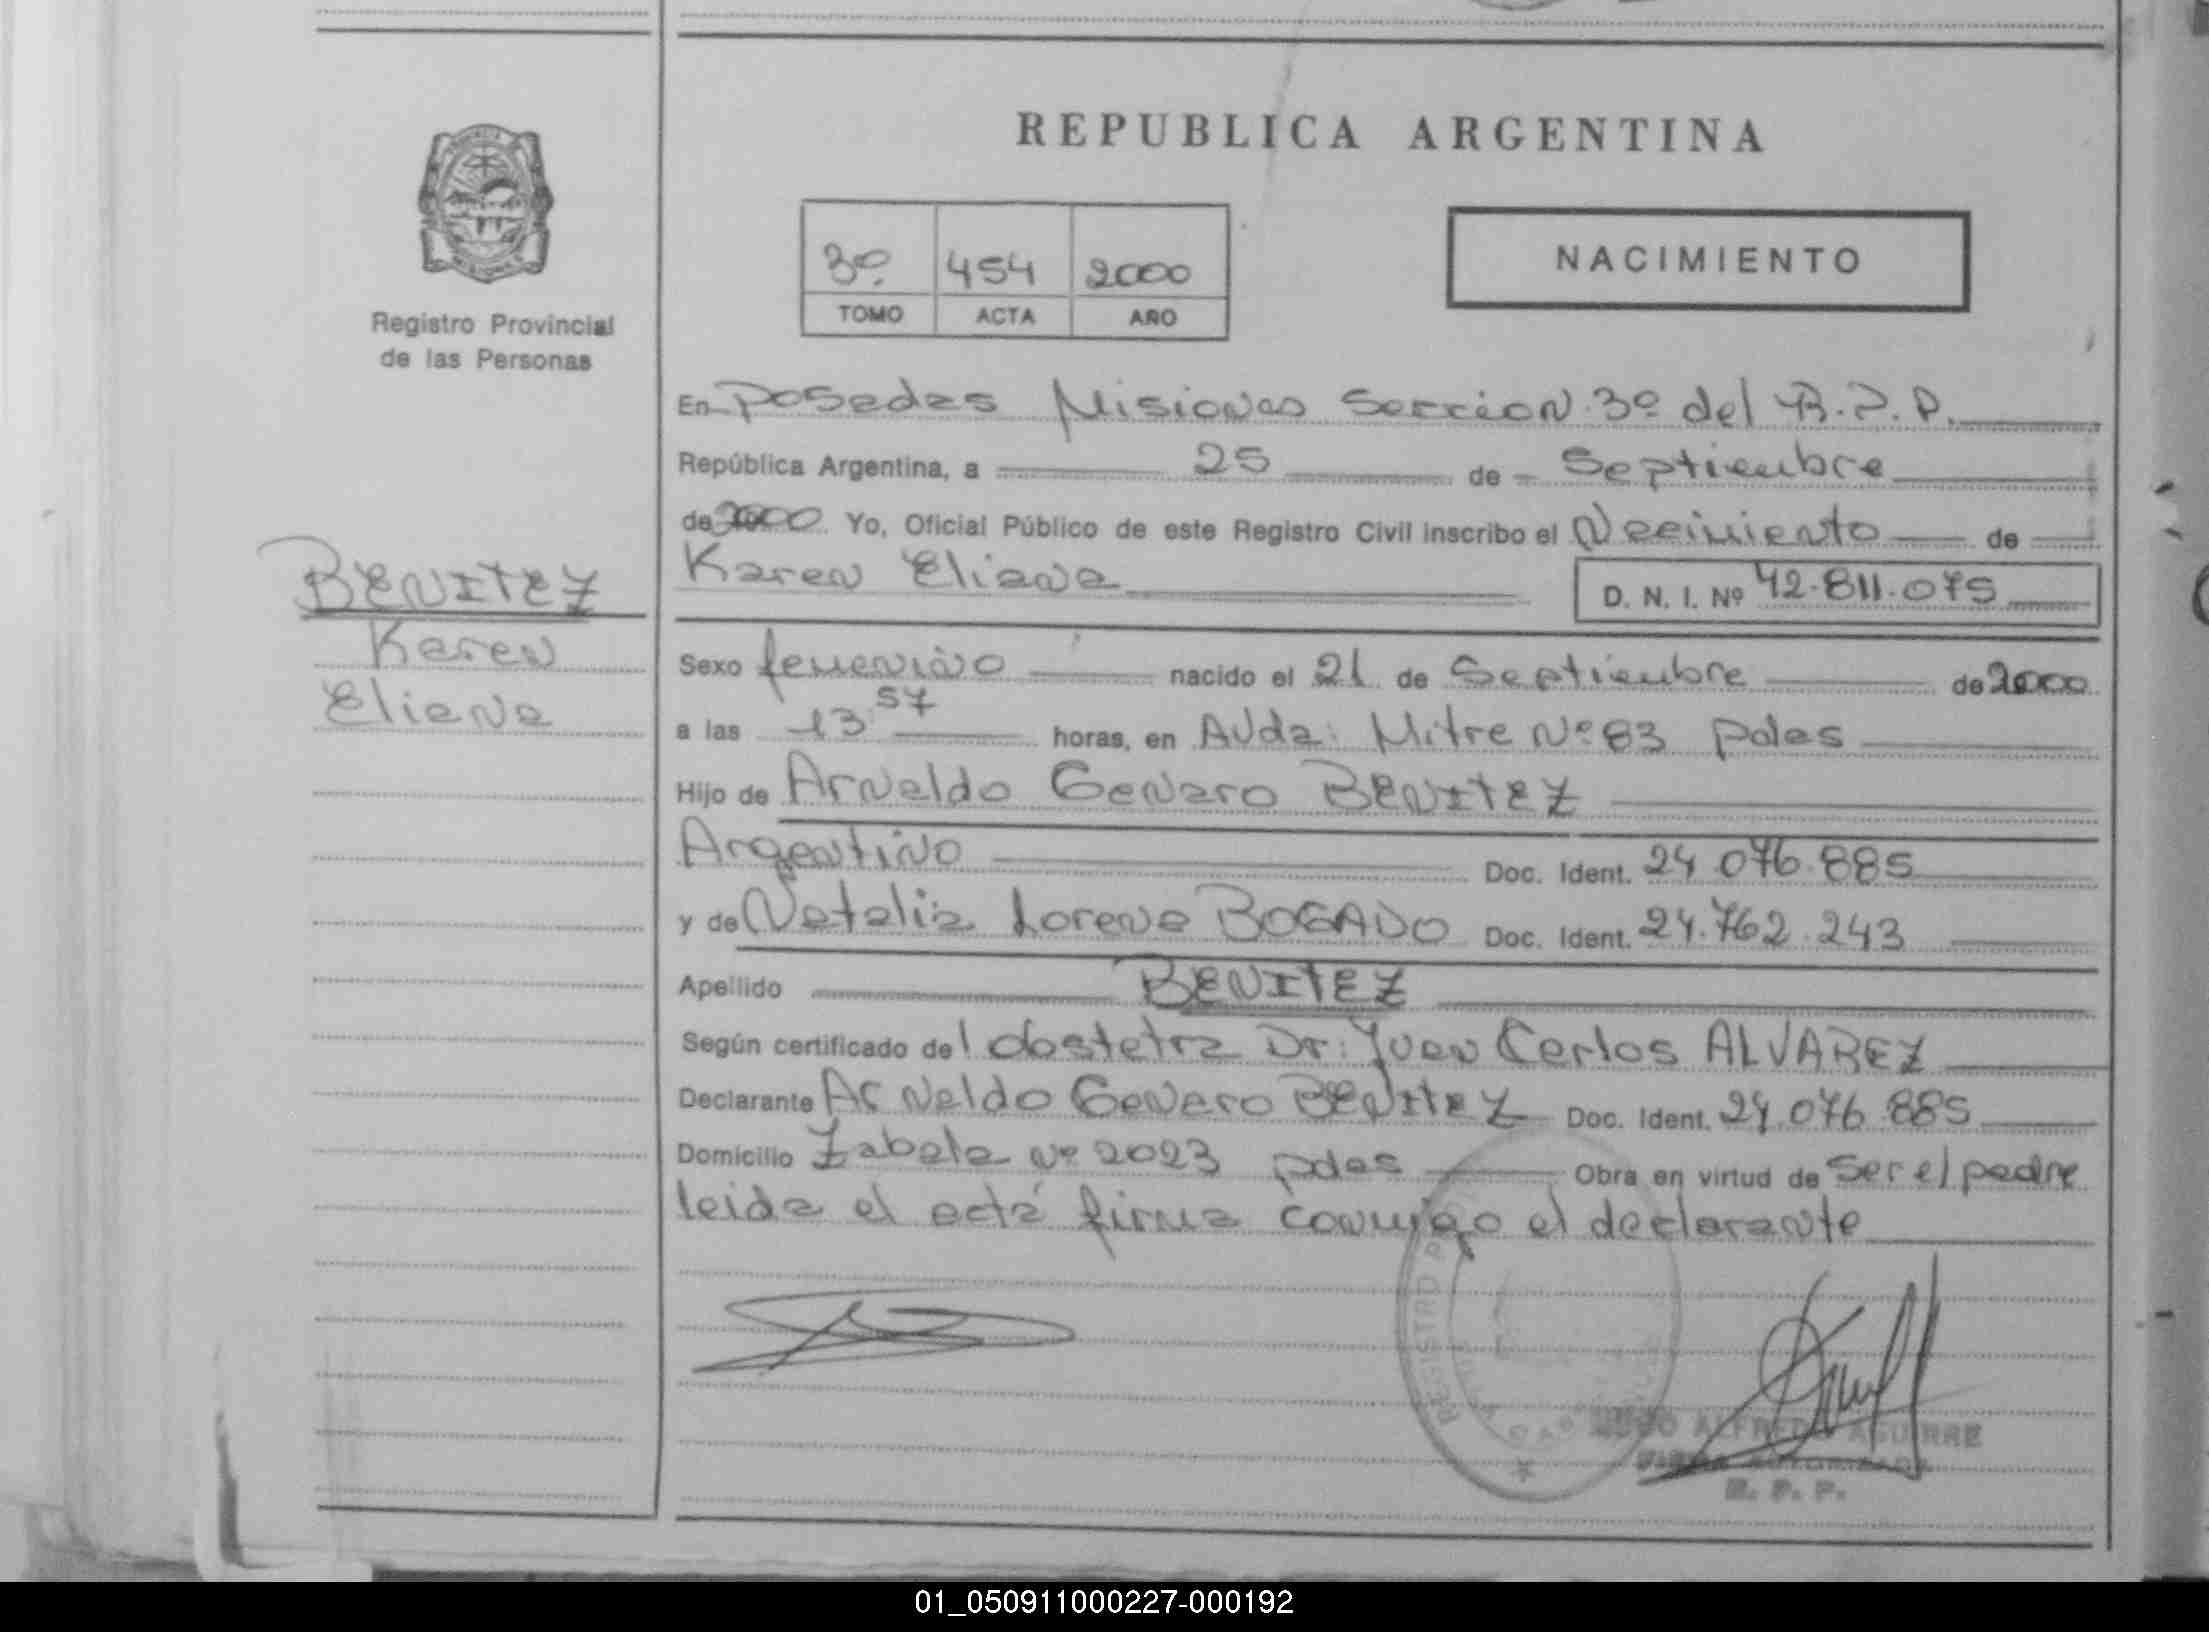 REPUBLICA ARGENTINA
Registro Provincial
de las Personas
3º 454 2000
TOMO ACTA AÑO
NACIMIENTO
BENITEZ
Karen
Eliana
En Posadas Misiones Seccion 3º del R.P.P.
República Argentina, a 25 de Septiembre
de 2000 Yo, Oficial Público de este Registro Civil inscribo el Nacimiento de
Karen Eliana
D. N. I. Nº 42.811.075
Sexo femenino nacido el 21 de Septiembre de 2000
a las 13 57 horas, en Avda: Mitre Nº 83 Pdas
Hijo de Arnaldo Genaro BENITEZ
Argentino Doc. Ident. 24 076.885
y de Natalia Lorena BOGADO Doc. Ident. 24.762.243
Apellido BENITEZ
Según certificado del obstetra Dr: Juan Carlos ALVAREZ
Declarante Arnaldo Genaro BENITEZ Doc. Ident. 24.076.885
Domicilio Zabala Nº 2023 pdas Obra en virtud de Ser el padre
leida el acta firma conmigo el declarante
REGISTRO
ALFREDO AGUIRRE
FIRMA AUTORIZADA
R. P. P.
01_050911000227-000192